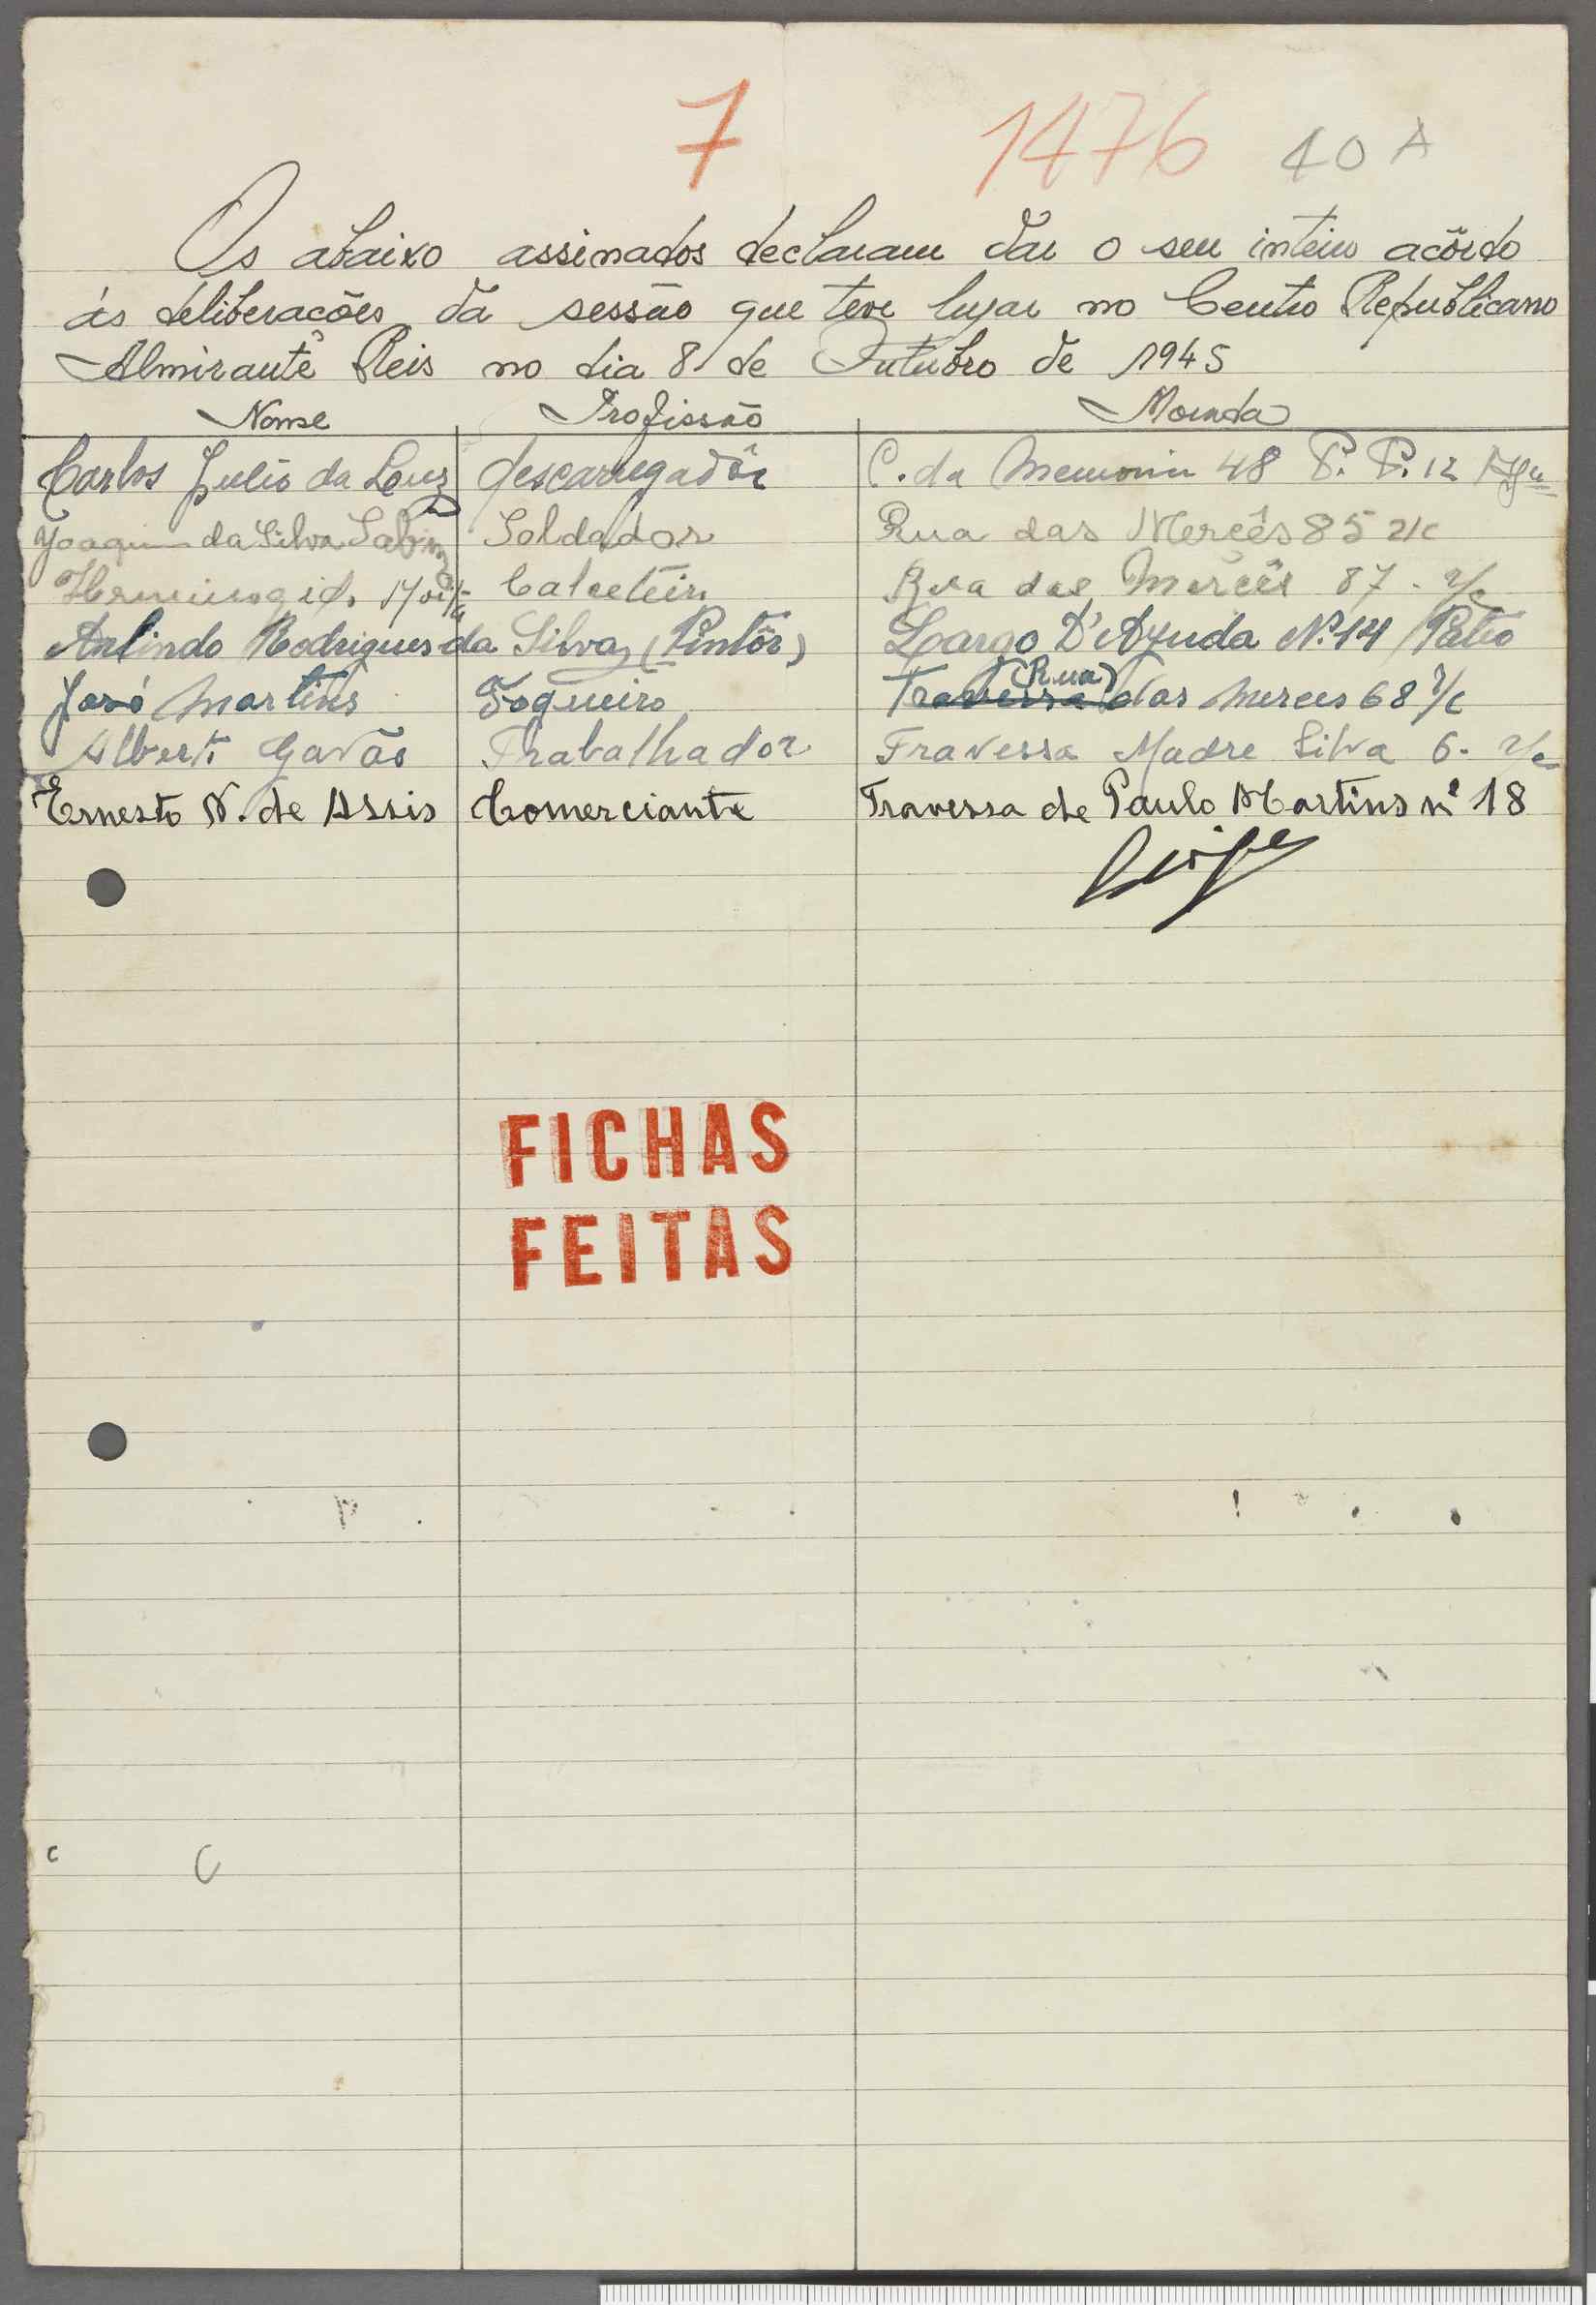 7 1476 40 A
Os abaixo assinados declaram dar o seu inteiro acôrdo
ás deliberacões da sessão que teve lugar no Centro Republicano
Almirante Reis no dia 8 de Outubro de 1945
Nome Profissão Morada
Carlos Julio da Luz descarregadôr C. da Memoria 48 P. P. 12
Joaquim da Silva Sabino Soldador Rua das Mercês 85 r/c
Calceteiro Rua das Mercês 87 - r/c
Arlindo Rodrigues da Silva (Pintôr) Largo D'Ajuda Nº 14 Patio
José Martins Fogueiro Travessa (Rua) das Merces 68 r/c
Alberto Gavão Trabalhador Travessa Madre Silva 6 - r/c
Ernesto N. de Assis Comerciante Travessa de Paulo Martins nº 18
FICHAS
FEITAS